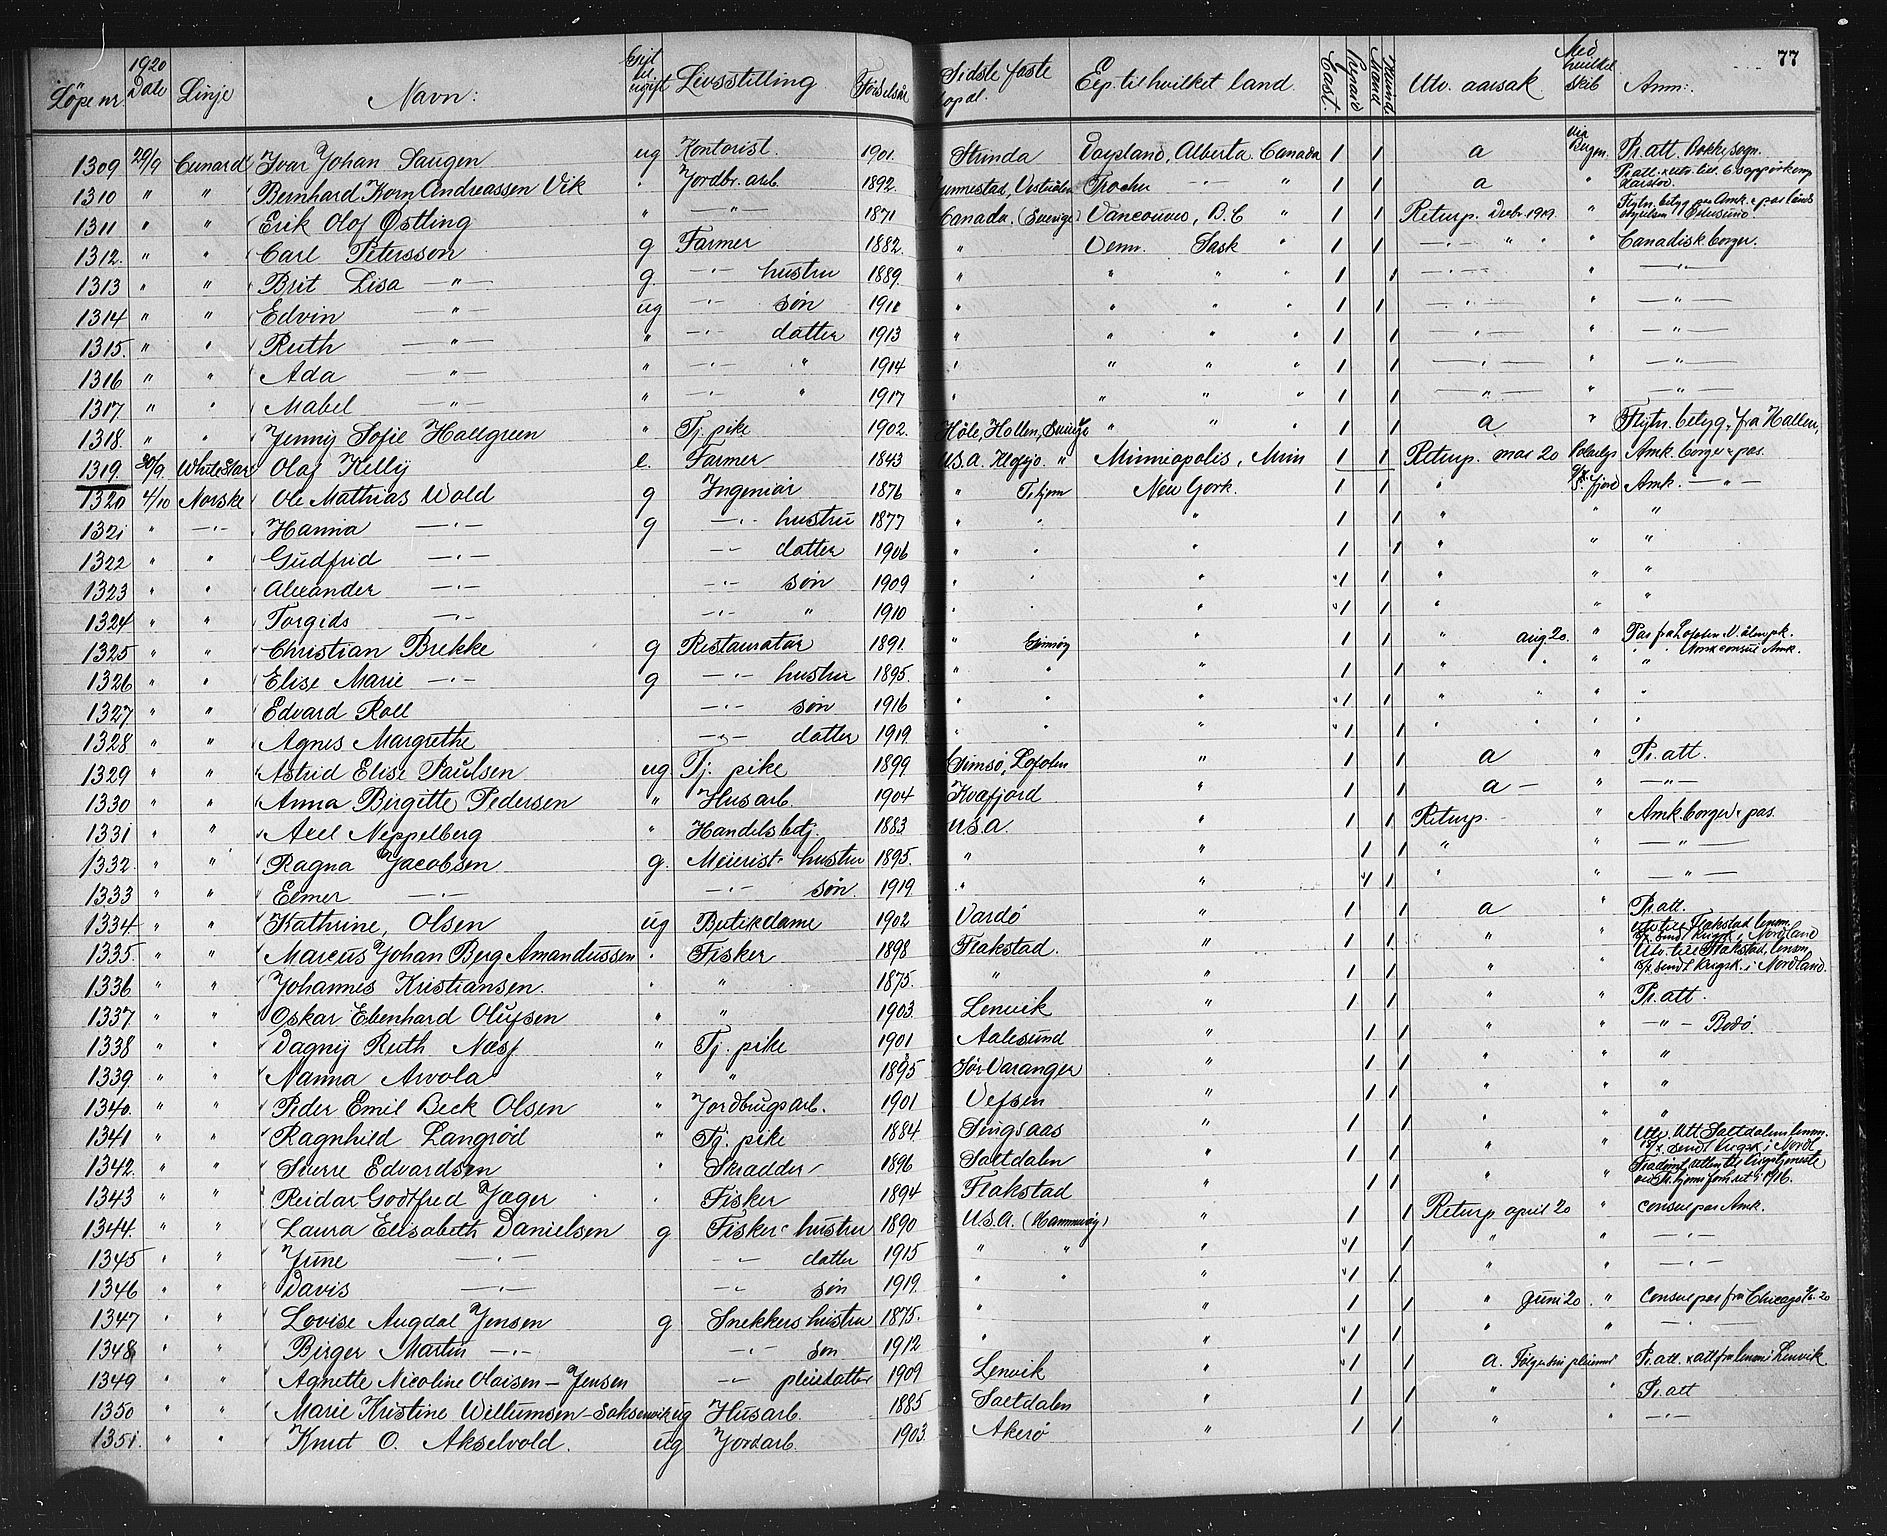 77
Løpe nr. 1920 Date Linje Navn: Gift el. ugift Livsstilling Fødselsår Sidste faste bopæl. Exp. til hvilket land. Bygd Mand Kvinde Utv. aarsak. Med hvilket skib Anm:
1309 29/9 Cunard Ivar Johan Saugen ug Kontorist. 1901. Strinda Alberta Canada 1 1 a via Bergen Pr. att. Bakke sogn.
1310 " " Bernhard Korn Andreassen Vik " Jordbr. arb. 1892. Trochu —"— " 1 1 a "
1311 " " Erik Olof Østling " —"— 1871 Canada, (Sverige) Vancouver, B.C " 1 1 Returp. Decbr. 1919. "
1312. " " Carl Petersson g Farmer 1882. " Sask " 1 1 —"— " " " Canadisk borger.
1313 " " Brit Lisa —"— g. —"— hustru 1889. " " " " 1 1 —"— " —"—
1314 " " Edvin —"— ug —"— søn 1911 " " " " 1 1 —"— " —"—
1315. " " Ruth —"— " —"— datter 1913 " " " " 1 1 —"— " —"—
1316 " " Ada —"— " —"— " 1914 " " " " 1 1 —"— " —"—
1317 " " Mabel —"— " —"— " 1917 " " " " 1 1 —"— " —"—
1318. " " Jenny Sofie Hallgreen " Tj. pike 1902. " " " 1 1 a " Flytn. betyg. fra Hallen,
1319 30/9 White Star Olaf Kelly e. Farmer 1843 U.S.A. " Minniapolis, Minn 1 1 Returp. mai 20 Amk. borger. pas.
1320 4/10 Norske Ole Mathias Wold g Ingeniør 1876 " New York. 1 1 " Amk. —"—
1321 " —"— Hanna —"— g —"— hustru 1877 " " " 1 1 " " "
1322 " " Gudfrid —"— —"— datter 1906 " " " 1 1 " " "
1323 " " Alexander —"— —"— søn 1909 " " " 1 1 " " "
1324 " " Torgids —"— —"— " 1910 " " " 1 1 " " "
1325 " " Christian Brekke g Restauratør 1891. " Gimsøy " 1 1 " aug 20. " Pas fra Lofoten Amk consul Amk.
1326 " " Elise Marie —"— g —"— hustru 1895. " " " 1 1 " " " "
1327 " " Edvard Roll —"— søn 1916 " " " 1 1 " " " "
1328 " " Agnes Margrethe —"— datter 1919 " " " 1 1 " " " "
1329 " " Astrid Elise Paulsen ug Tj. pike 1899 Gimsø, Lofoten " 1 1 a " Pr. att.
1330 " " Anna Birgitte Pedersen " Husarb. 1904 Kvæfjord " 1 1 a — " —"—
1331 " " Axel Neppelberg " Handelsbetj. 1883 U.S.A. " 1 1 Returp. " Amk. borger. pas.
1332. " " Ragna Jacobsen g. Meierist. hustru 1895. " " 1 1 " " —"—
1333 " " Elmer —"— —"— søn. 1919 " " 1 1 " " —"—
1334 " " Kathrine, Olsen ug Butikdame 1902 Vardø " 1 1 a " Pr. att.
1335. " " Marcus Johan Berg Amandussen " Fisker 1898 Flakstad. " 1 1 " " Utv. till Flakstad lensm. sendt Krigsk. i Nordland
1336 " " Johannes Kristiansen. " " 1875. " " 1 1 " " Utv. till Flakstad lensm. sendt Krigsk. i Nordland.
1337 " " Oskar Ebenhard Olufsen " " 1903. Lenvik " 1 1 " " Pr. att.
1338 " " Dagny Ruth Næss " Tj. pike 1901 Aalesund " 1 1 " " —"— Bodø
1339. " " Nanna Arvola " " 1895 Sør-Varanger " 1 1 " " "
1340. " " Peder Emil Beck Olsen " Jordbrugsarb. 1901 Vefsen " 1 1 " " "
1341 " " Ragnhild Langrød " Tj. pike 1884 Singsaas " 1 1 " " "
1342. " " Sverre Edvardsen " Skrædder 1896 Saltdalen " 1 1 " " Utv. att Saltdalens lensm. sendt Krigsk. i Nordl.
1343 " " Reidar Godtfred Jæger " Fisker 1894 Flakstad " 1 1 " " 1916.
1344. " " Laura Elisabeth Danielsen g Fisker hustru 1890 U.S.A. " 1 1 Returp april 20 " consulpas Amk.
1345 " " June —"— —"— datter 1915 " " " 1 1 " " —"—
1346 " " Davis —"— —"— søn 1919. " " " 1 1 " " —"—
1347 " " Lovise Augdal Jensen g Snekkers hustru 1875. " " 1 1 " Juni 20 " consulpas fra Chicago
1348 " " Birger Martin —"— —"— søn 1912 " " 1 1 " " —"—
1349 " " Agnette Nicoline Olaisen – Jensen —"— pleiedatter 1909 Lenvik " 1 1 a. Følger sin pleiemor Pr. att. att fra lensm i Lenvik
1350 " " Marie Kristine Willumsen – Saksenvik ug Husarb. 1885 Saltdalen " 1 1 " " Pr. att
1351. " " Knut O. Akselvold. ug Jordarb. 1903 Akerø " 1 1 " " —"—